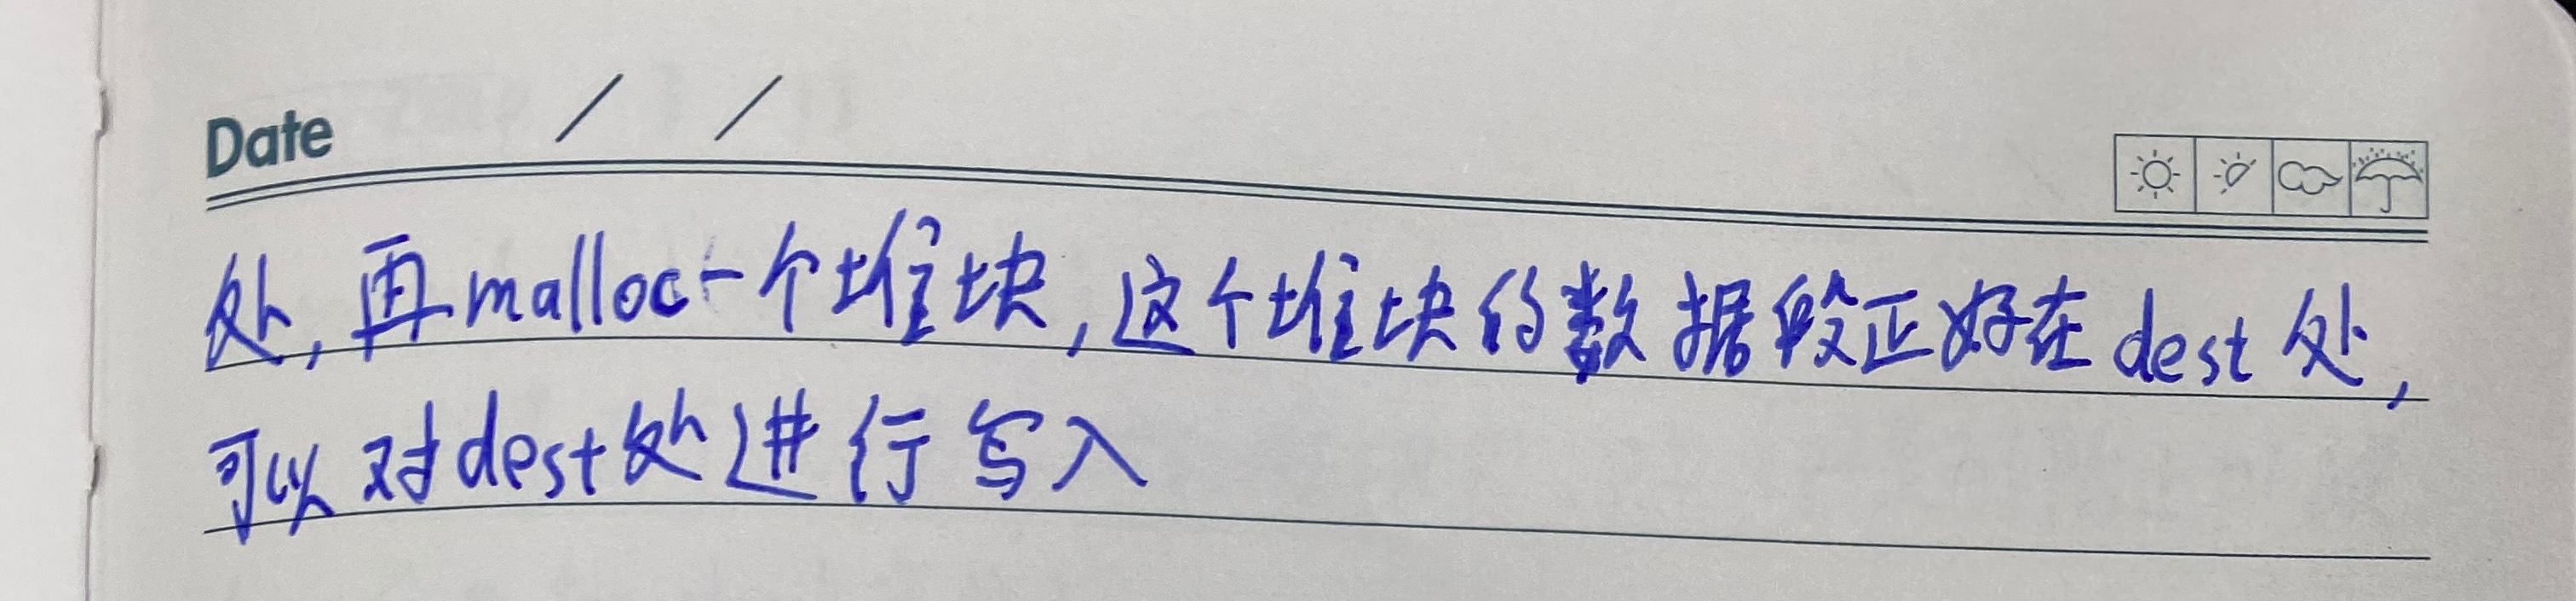 Date / /
处,再malloc一个堆块,这个堆块的数据段正好在dest处,
可以对dest处进行写入